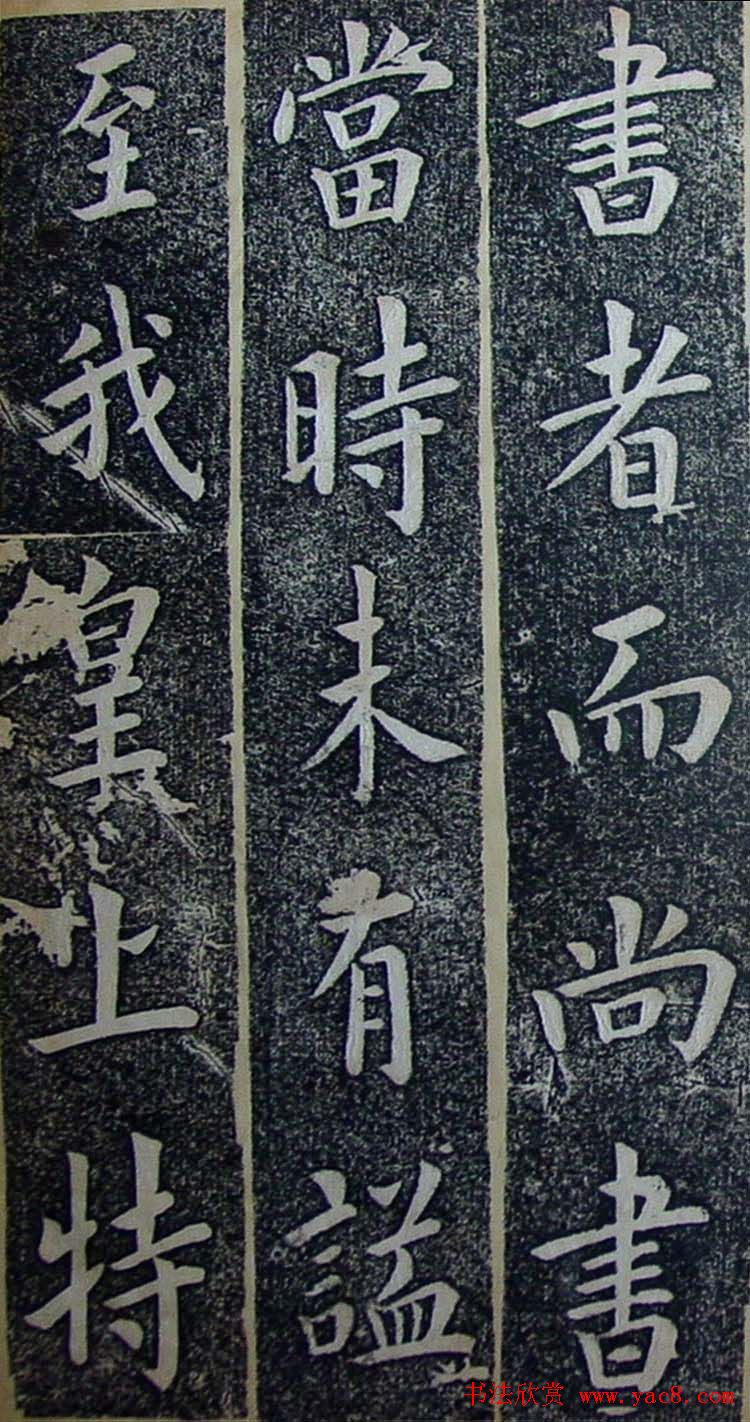 書者而尚書
當時未有謚
至我皇上特
书法欣赏 www.yac8.com